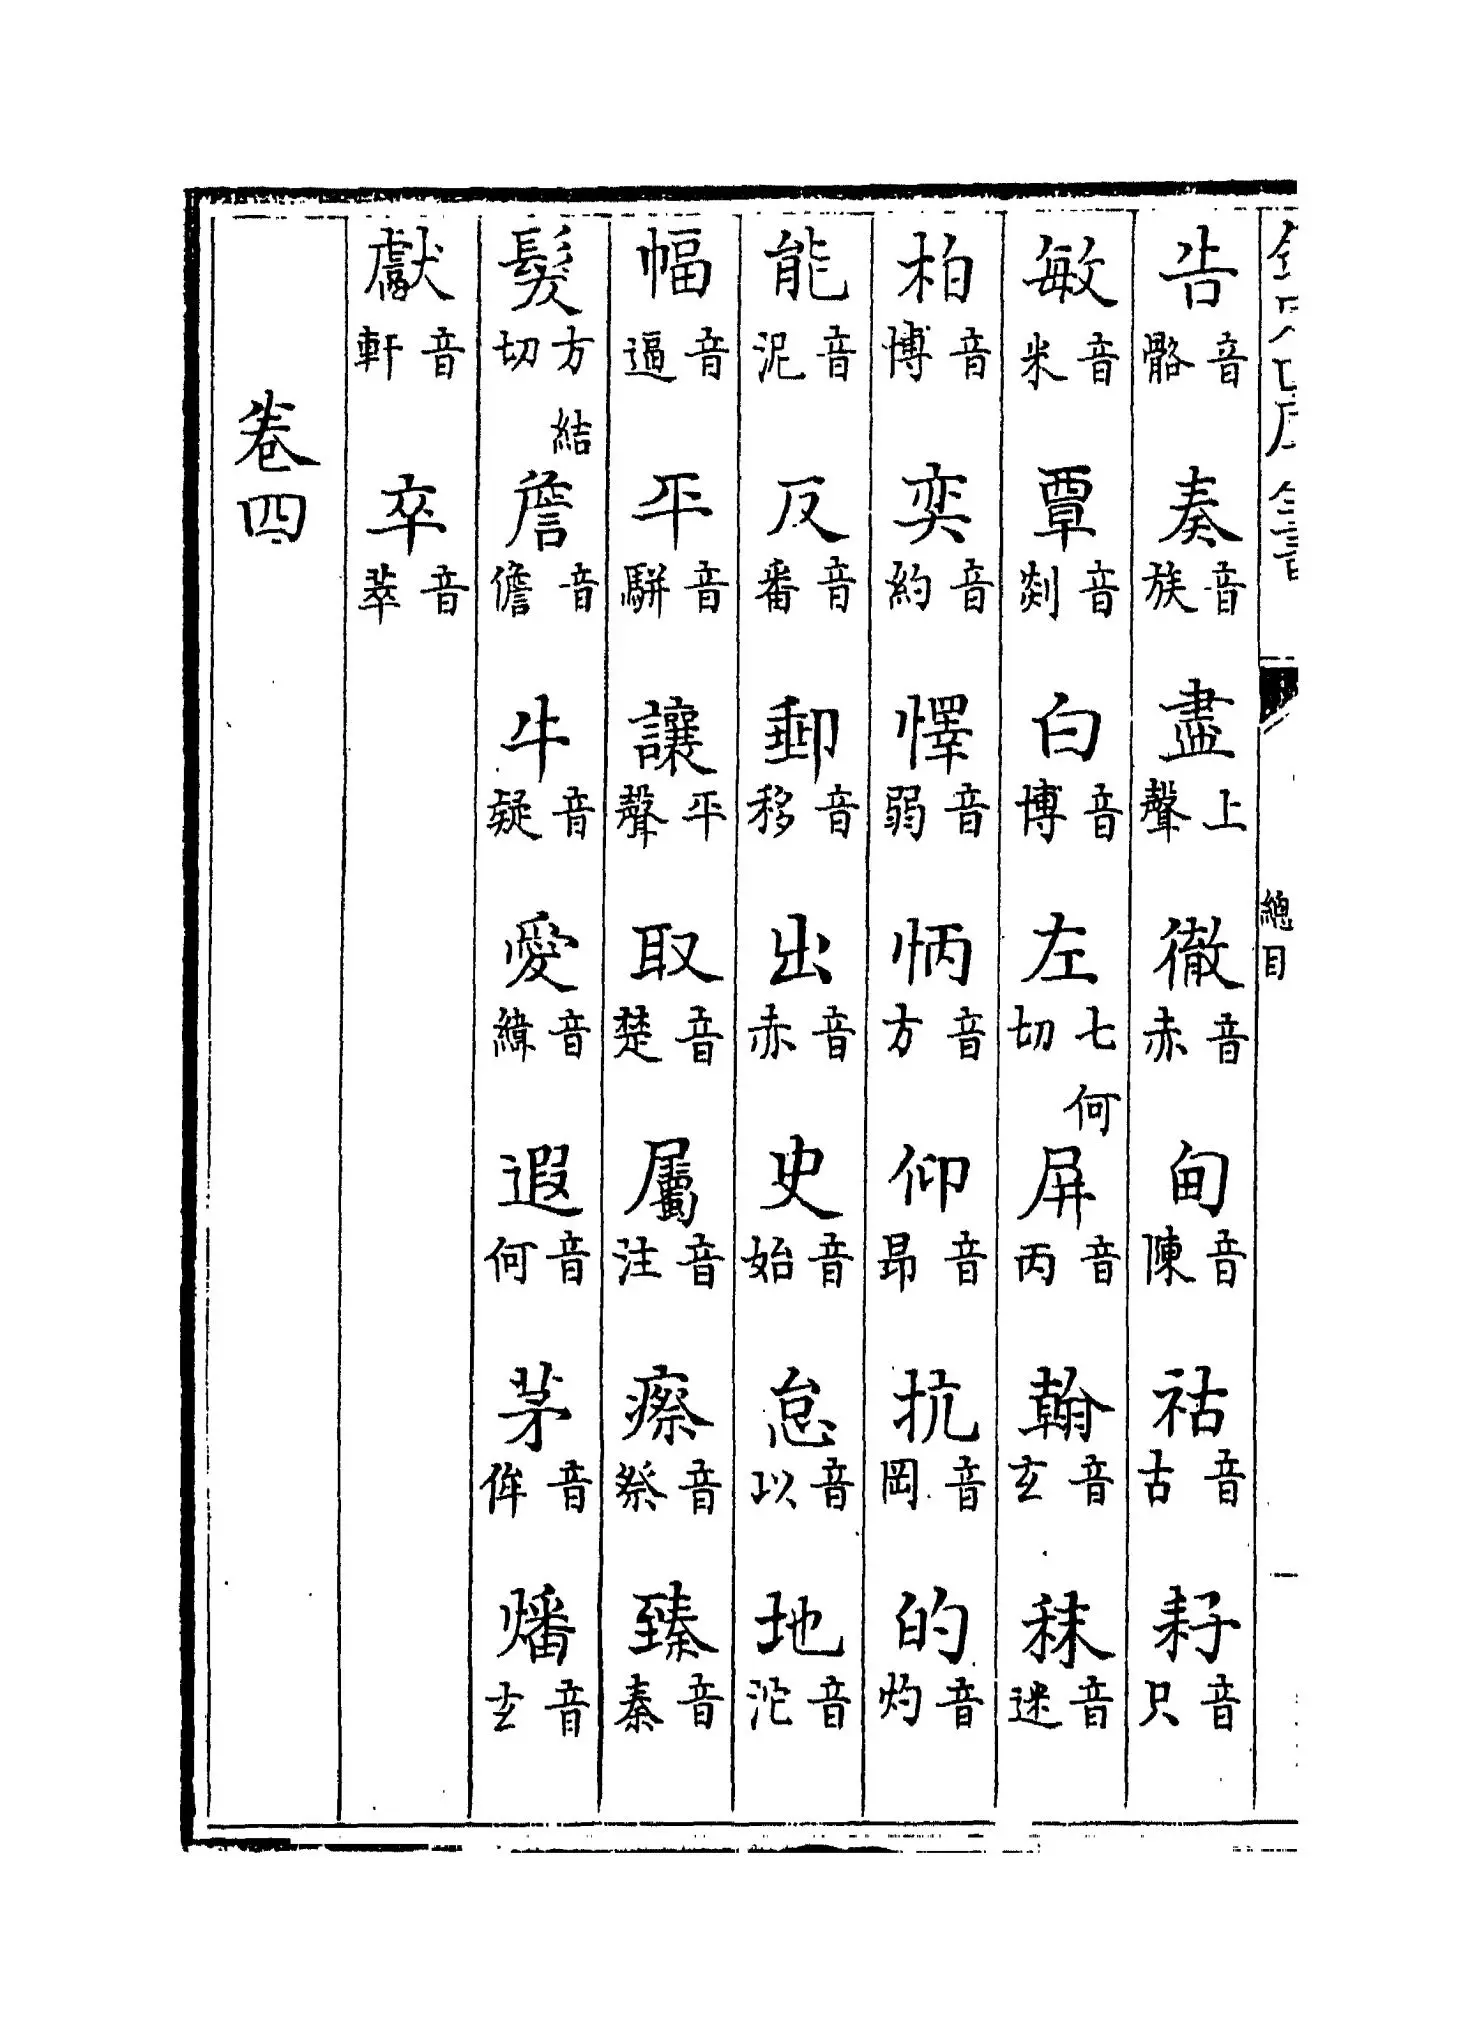 欽定四庫全書
總目
告音骼 奏音族 盡上聲 徹音赤 甸音陳 祜音古 耔音只
敏音米 覃音剡 白音博 左七何切 屏音丙 翰音玄 秣音迷
柏音博 奕音約 懌音弱 怲音方 仰音昂 抗音岡 的音灼
能音泥 反音番 郵音移 出音赤 史音始 怠音以 地音沱
幅音逼 平音駢 讓平聲 取音楚 屬音注 瘵音祭 臻音秦
髮方結切 詹音儋 牛音疑 愛音緯 遐音何 茅音侔 燔音玄
獻音軒 卒音萃
卷四